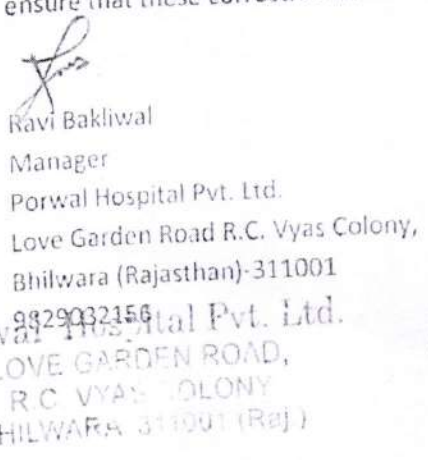 ensure that these
Ravi Bakliwal
Manager
Porwal Hospital Pvt. Ltd.
Love Garden Road R.C. Vyas Colony,
Bhilwara (Rajasthan)-311001
9829032156
Hospital Pvt. Ltd.
LOVE GARDEN ROAD,
R.C. VYAS COLONY
BHILWARA 311001 (Raj)